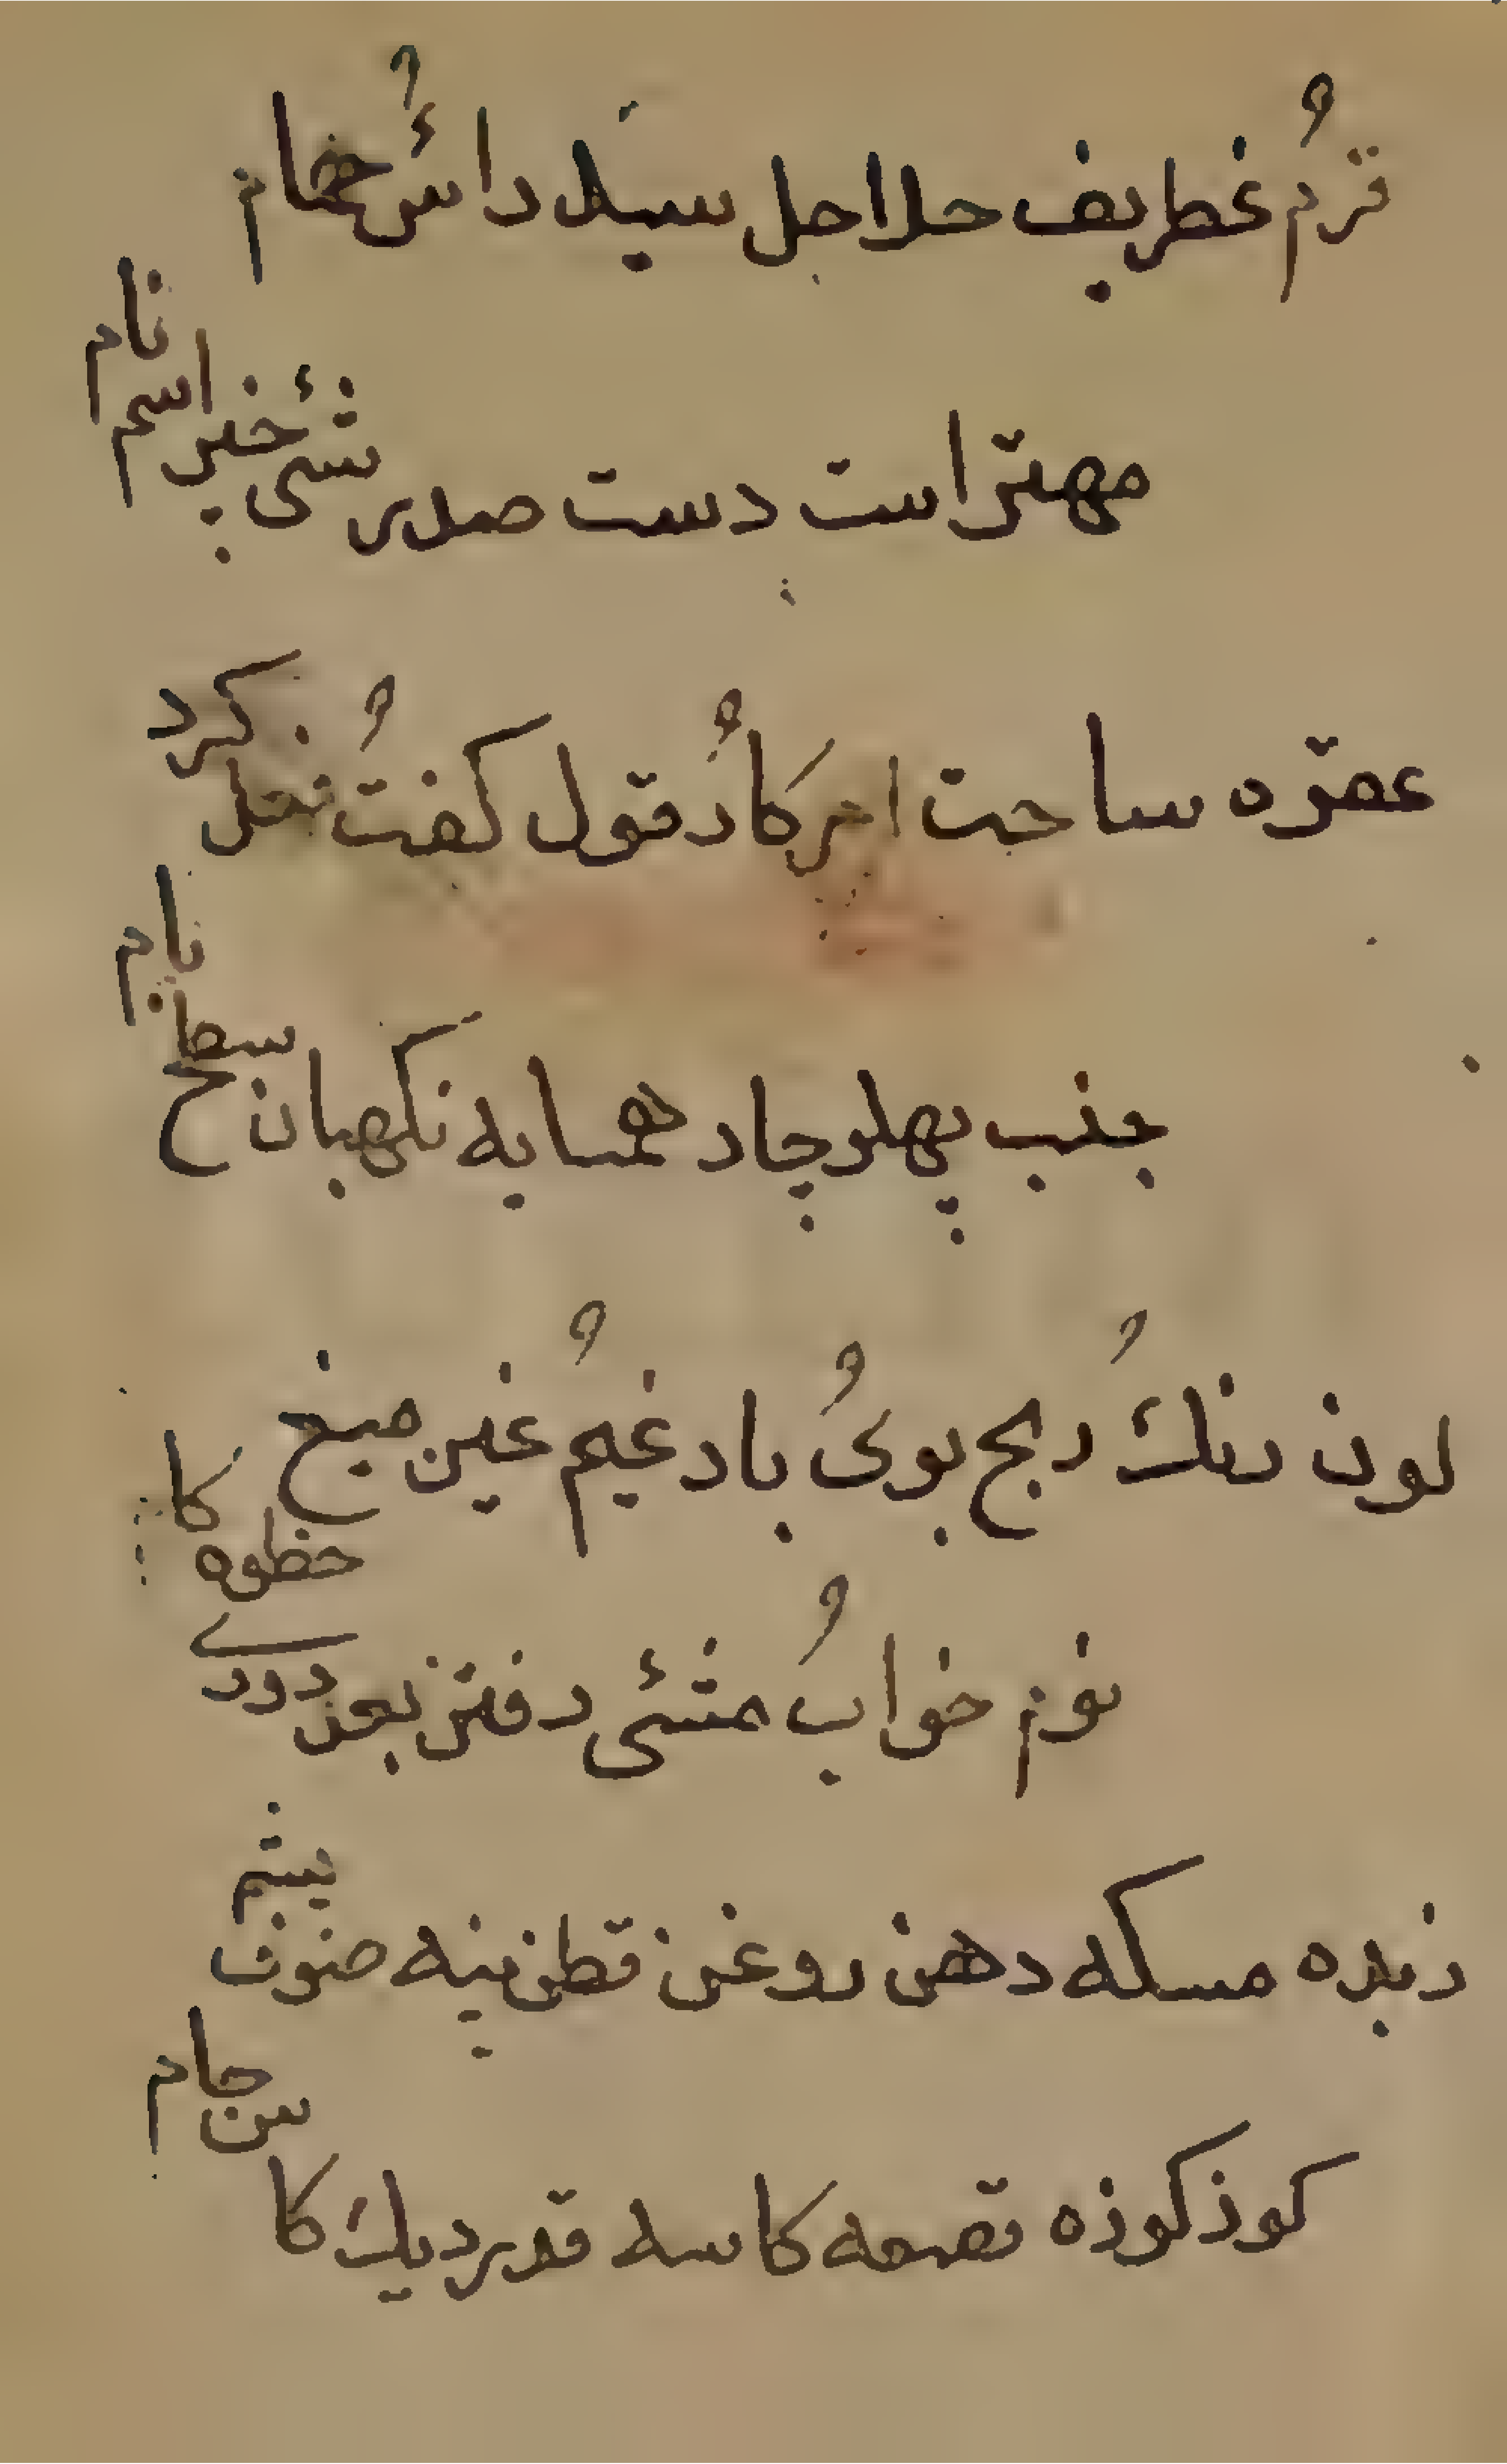 قرمُ غطریف حلاحل سید دا سُ همام
مهتر است دست صدر شئی خیر اسم نام
عقره ساحت امر کار قول کفت فعل کرد
جنب پهلو جار همسایه نکهبان سطح بام
لون رنك ریح بوی باد غیم غین میغ
نوم خواب مشئی دفتن بعد دورے خطوه کا
زبده مسکه دهن روغن قطن پنبه صوف پشم
کوز کوزه قصعه کاسه قدر دیك کا س جام